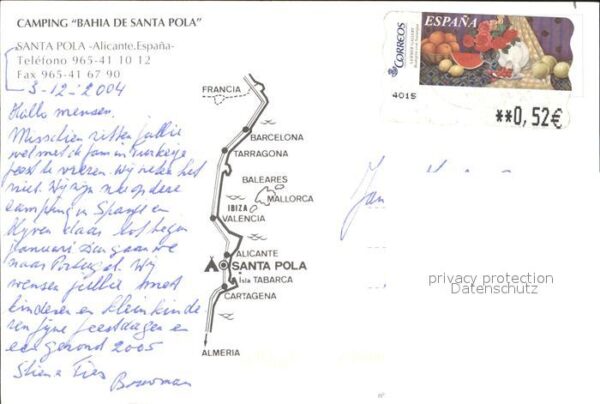 CAMPING "BAHIA DE SANTA POLA"
SANTA POLA -Alicante.España-
Teléfono 965-41 10 12
Fax 965-41 67 90
3-12-2004
Hallo mensen.
Misschien zitten jullie
wel met de fam in Turkeije
feest te vieren. Wij weten het
niet. Wij zijn nu op dere
camping in Spanje en
blijven daar tot begin
januari dan gaan we
naar Portugal. Wij
wensen jullie met
kinderen en kleinkinde
ren fijne feestdagen en
een gezond 2005
Stien & Ties
Bouwman
FRANCIA
BARCELONA
TARRAGONA
BALEARES
MALLORCA
IBIZA
VALENCIA
ALICANTE
SANTA POLA
Isla TABARCA
CARTAGENA
ALMERIA
CORREOS
ESPAÑA
4015
**0,52€
Jan
privacy protection
Datenschutz